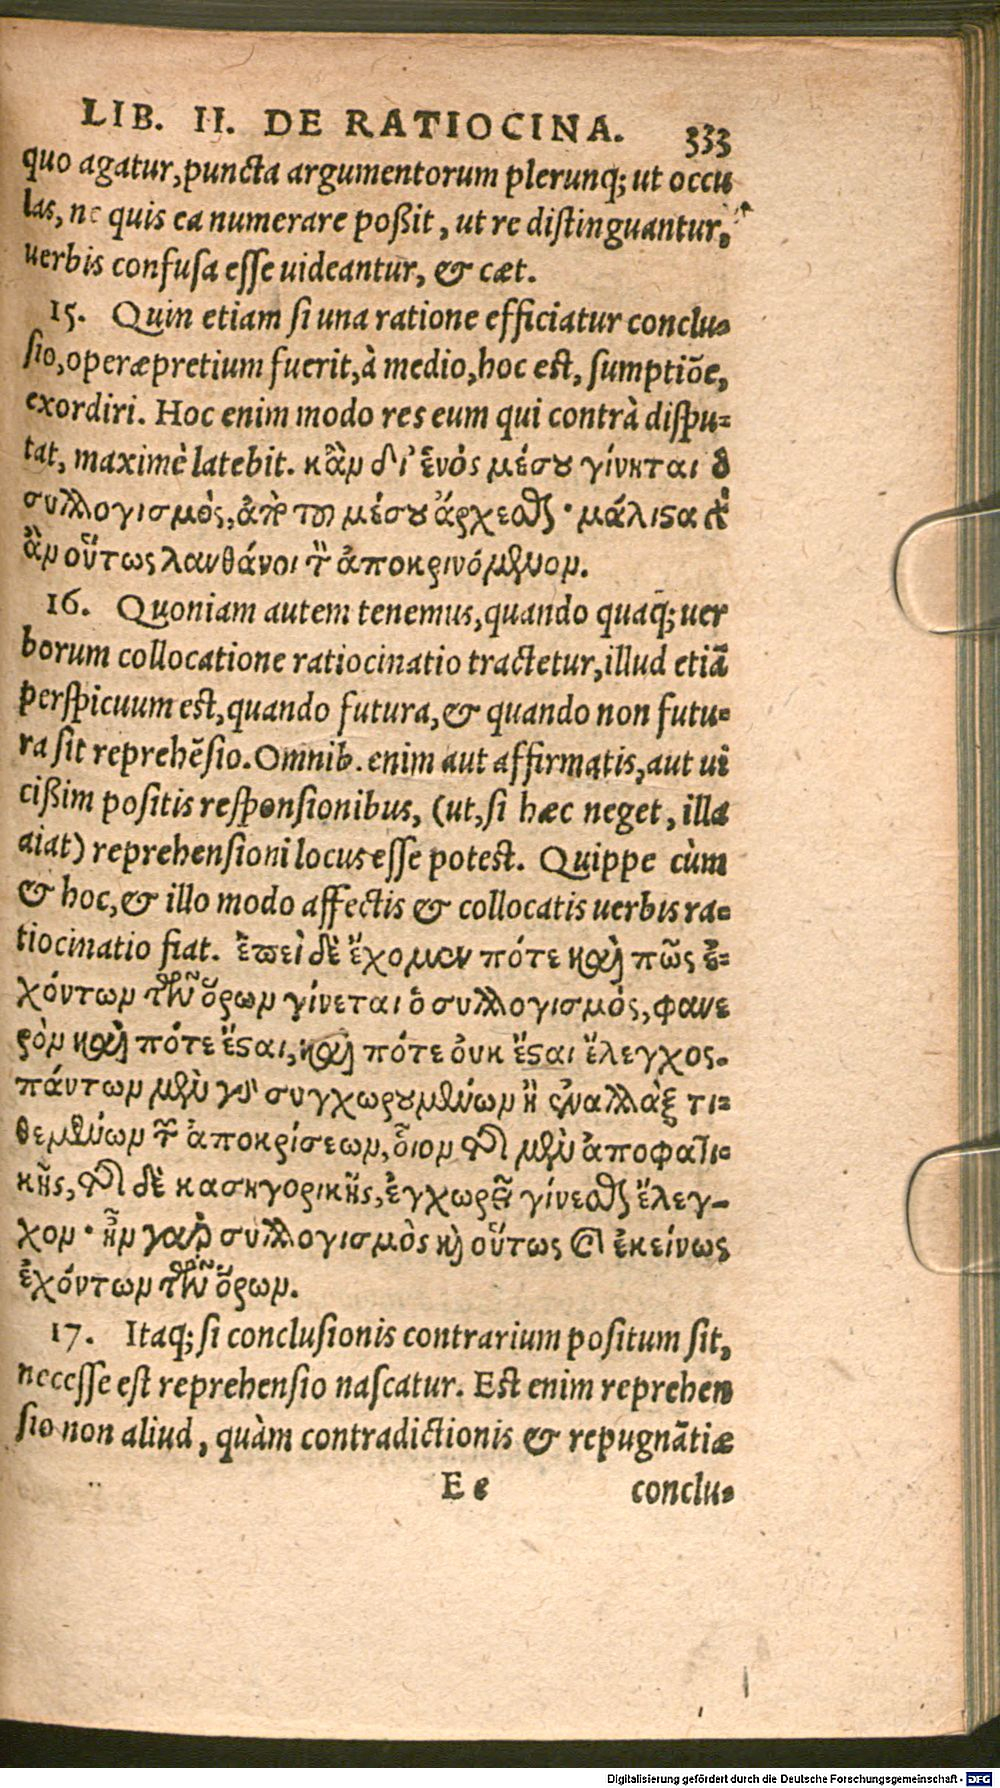 LIB. II. DE RATIOCINA. 333
quo agatur, puncta argumentorum plerunq; ut occu
las, ne quis ea numerare poßit, ut re distinguantur,
uerbis confusa esse uideantur, & cæt.
15. Quin etiam si una ratione efficiatur conclu-
sio, operæpretium fuerit, à medio, hoc est, sumptiõe,
exordiri. Hoc enim modo res eum qui contrà dispu-
tat, maximè latebit. κἂν δι' ἑνὸς μέσου γίνηται ὁ
συλλογισμὸς, ἀπὸ τοῦ μέσου ἄρχεσθαι· μάλιστα γὰρ
ἂν οὕτως λανθάνοι τὸν ἀποκρινόμενον.
16. Quoniam autem tenemus, quando quaq; uer
borum collocatione ratiocinatio tractetur, illud etiã
perspicuum est, quando futura, & quando non futu-
ra sit reprehẽsio. Omnib. enim aut affirmatis, aut ui
cißim positis responsionibus, (ut, si hæc neget, illa
aiat) reprehensioni locus esse potest. Quippe cùm
& hoc, & illo modo affectis & collocatis uerbis ra-
tiocinatio fiat. ἐπεὶ δὲ ἔχομεν πότε καὶ πῶς ἐ-
χόντων τῶν ὅρων γίνεται ὁ συλλογισμὸς, φανε
ρὸν καὶ πότε ἔσται, καὶ πότε οὐκ ἔσται ἔλεγχος.
πάντων μὲν γὰρ συγχωρουμένων ἢ ἐναλλὰξ τι-
θεμένων τῶν ἀποκρίσεων, οἷον τῆς μὲν ἀποφατι-
κῆς, τῆς δὲ κατηγορικῆς, ἐγχωρεῖ γίνεσθαι ἔλεγ-
χον· ἦν γὰρ συλλογισμὸς καὶ οὕτως καὶ ἐκείνως
ἐχόντων τῶν ὅρων.
17. Itaq; si conclusionis contrarium positum sit,
necesse est reprehensio nascatur. Est enim reprehen
sio non aliud, quàm contradictionis & repugnãtiæ
Ee conclu-
Digitalisierung gefördert durch die Deutsche Forschungsgemeinschaft - DFG